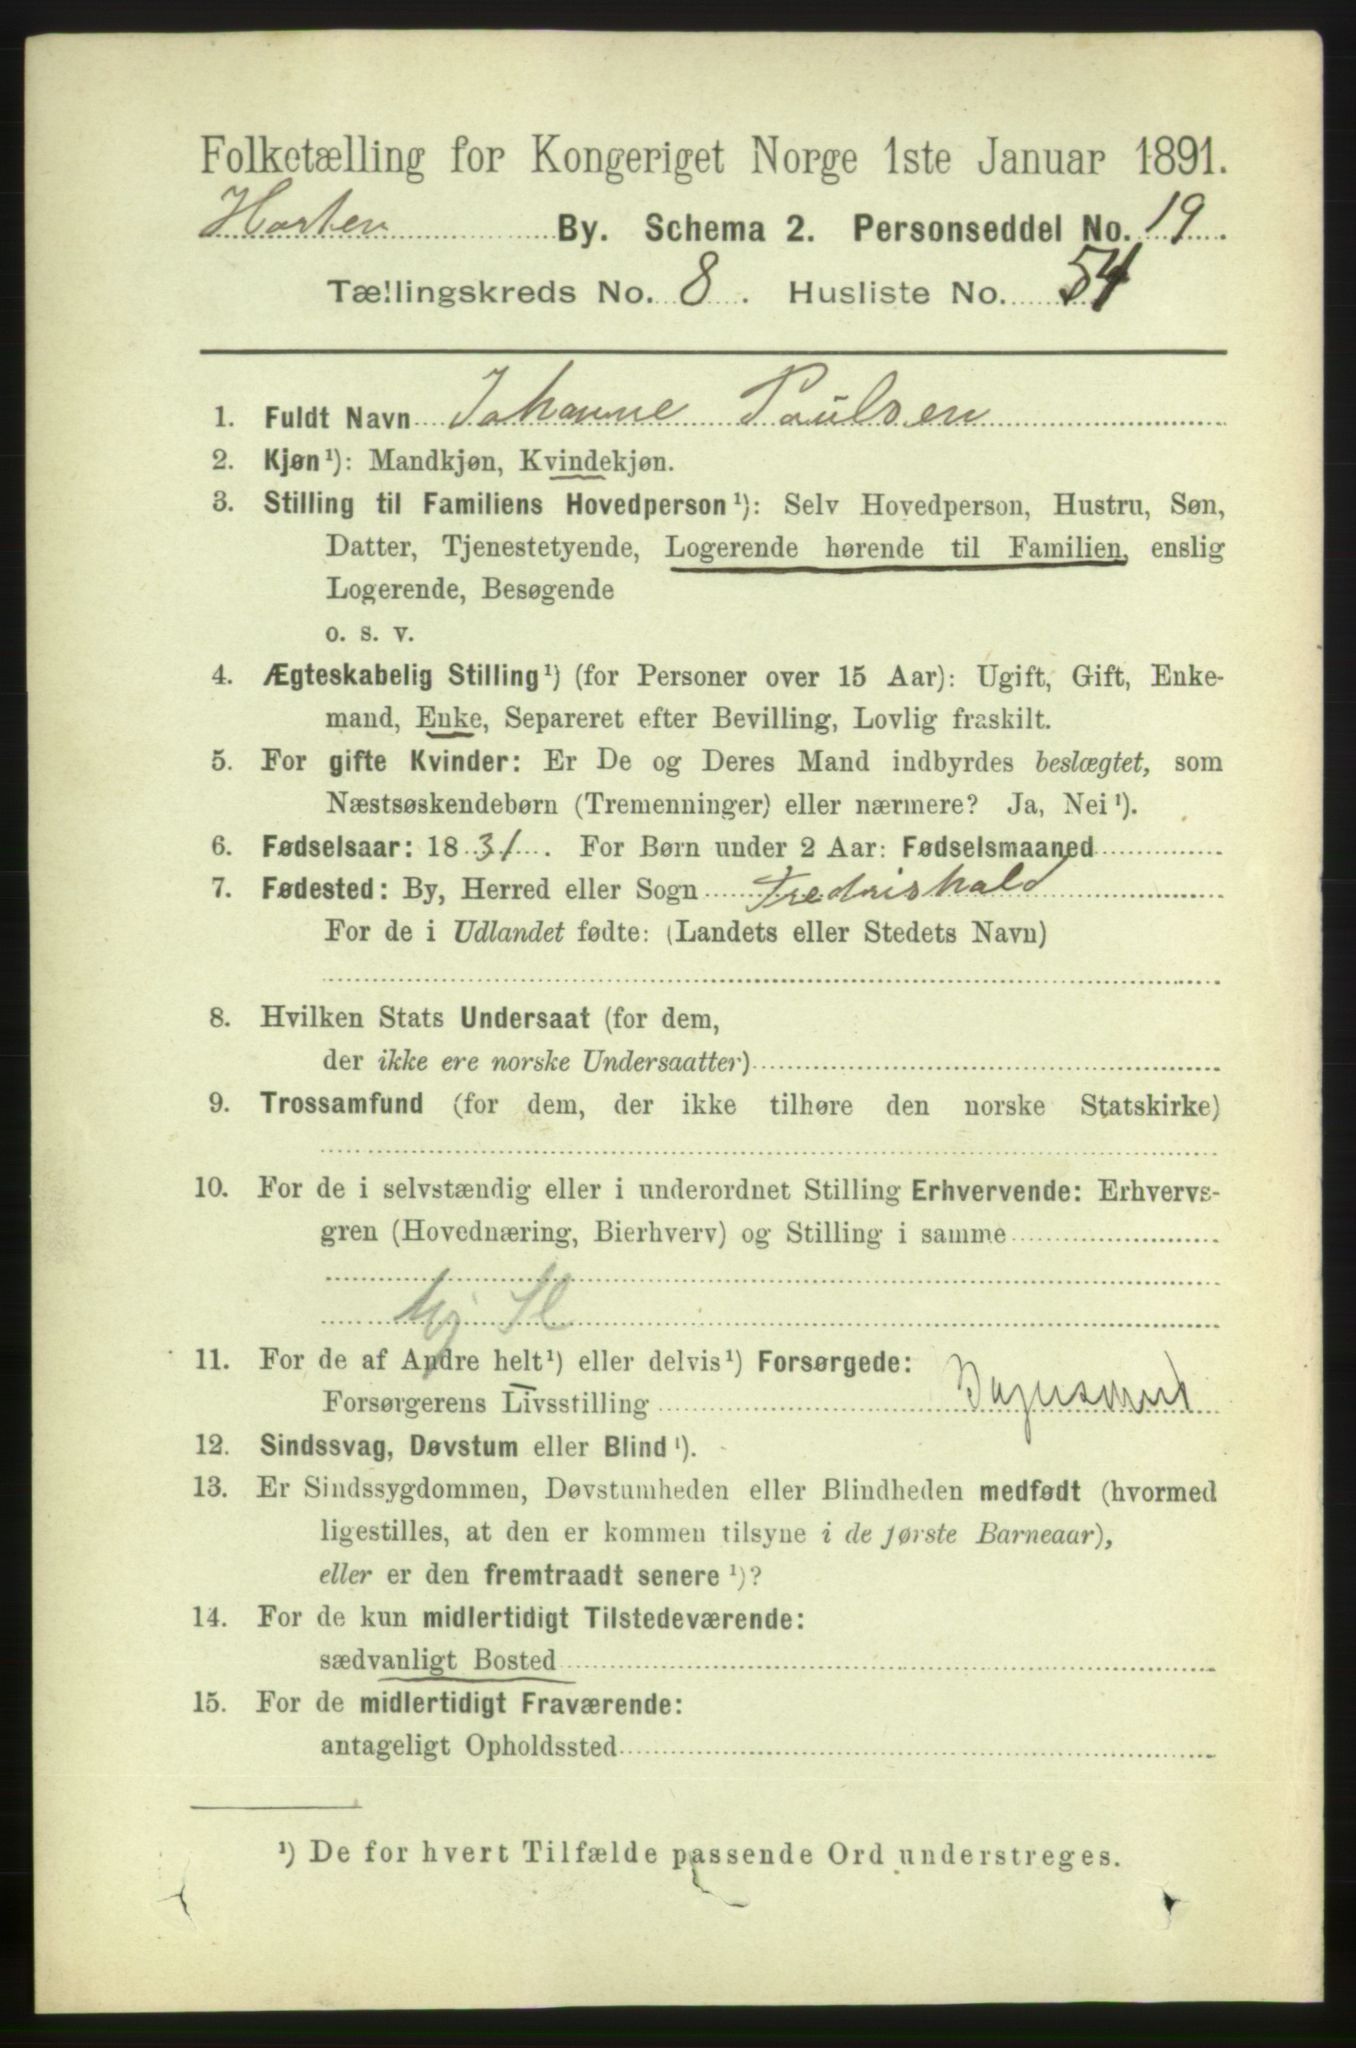 Folketælling for Kongeriget Norge 1ste Januar 1891.
Horten By. Schema 2. Personseddel No. 19.
Tællingskreds No. 8. Husliste No. 54
1. Fuldt Navn Johanne Paulsen
2. Kjøn¹): Mandkjøn, Kvindekjøn.
3. Stilling til Familiens Hovedperson¹): Selv Hovedperson, Hustru, Søn,
Datter, Tjenestetyende, Logerende hørende til Familien, enslig
Logerende, Besøgende
o. s. v.
4. Ægteskabelig Stilling¹) (for Personer over 15 Aar): Ugift, Gift, Enke-
mand, Enke, Separeret efter Bevilling, Lovlig fraskilt.
5. For gifte Kvinder: Er De og Deres Mand indbyrdes beslægtet, som
Næstsøskendebørn (Tremenninger) eller nærmere? Ja, Nei¹).
6. Fødselsaar: 1831. For Børn under 2 Aar: Fødselsmaaned
7. Fødested: By, Herred eller Sogn Fredrishald
For de i Udlandet fødte: (Landets eller Stedets Navn)
8. Hvilken Stats Undersaat (for dem,
der ikke ere norske Undersaatter)
9. Trossamfund (for dem, der ikke tilhøre den norske Statskirke)
10. For de i selvstændig eller i underordnet Stilling Erhvervende: Erhvervs-
gren (Hovednæring, Bierhverv) og Stilling i samme
11. For de af Andre helt¹) eller delvis¹) Forsørgede:
Forsørgerens Livsstilling
12. Sindssvag, Døvstum eller Blind¹).
13. Er Sindssygdommen, Døvstumheden eller Blindheden medfødt (hvormed
ligestilles, at den er kommen tilsyne i de første Barneaar),
eller er den fremtraadt senere¹)?
14. For de kun midlertidigt Tilstedeværende:
sædvanligt Bosted
15. For de midlertidigt Fraværende:
antageligt Opholdssted
¹) De for hvert Tilfælde passende Ord understreges.